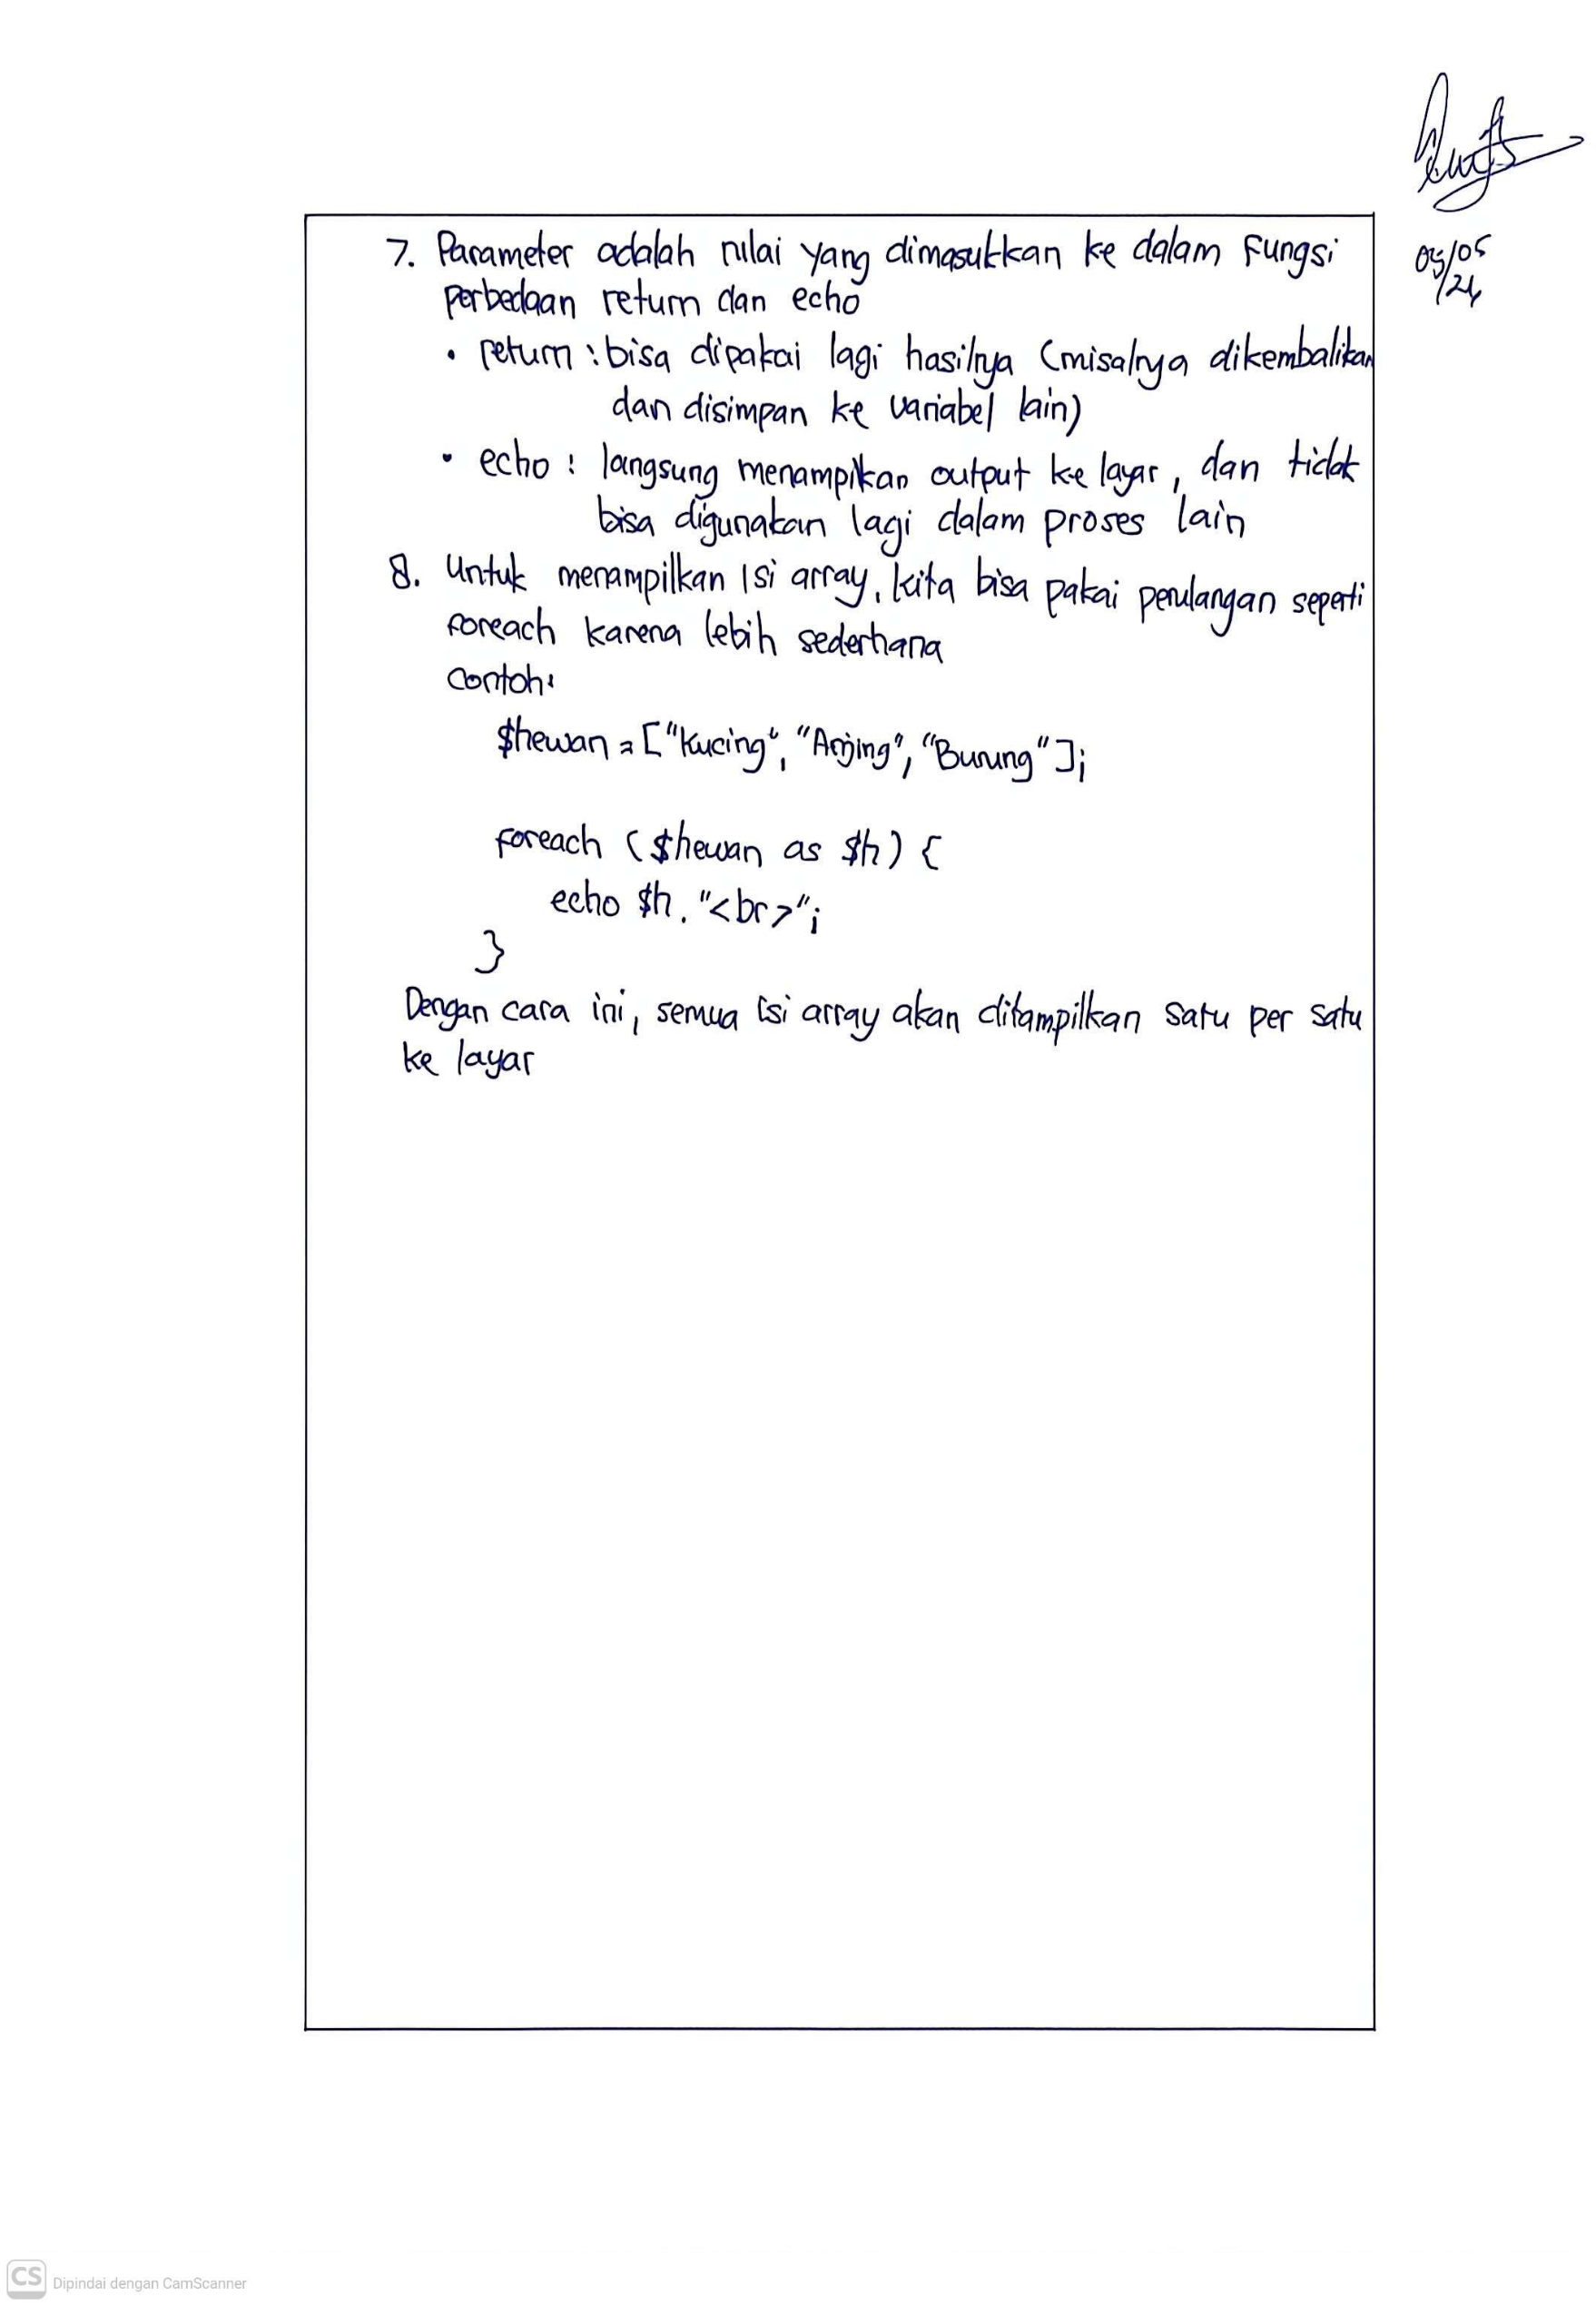 7. Parameter adalah nilai yang dimasukkan ke dalam fungsi
perbedaan return dan echo
• return : bisa dipakai lagi hasilnya (misalnya dikembalikan
dan disimpan ke variabel lain)
• echo : langsung menampikan output ke layar, dan tidak
bisa digunakan lagi dalam proses lain
8. Untuk menampilkan isi array, kita bisa pakai perulangan seperti
foreach karena lebih sederhana
contoh:
$hewan = ["Kucing", "Anjing", "Burung"];
foreach ($hewan as $h) {
echo $h. "<br>";
}
Dengan cara ini, semua isi array akan ditampilkan satu per satu
ke layar
CS Dipindai dengan CamScanner